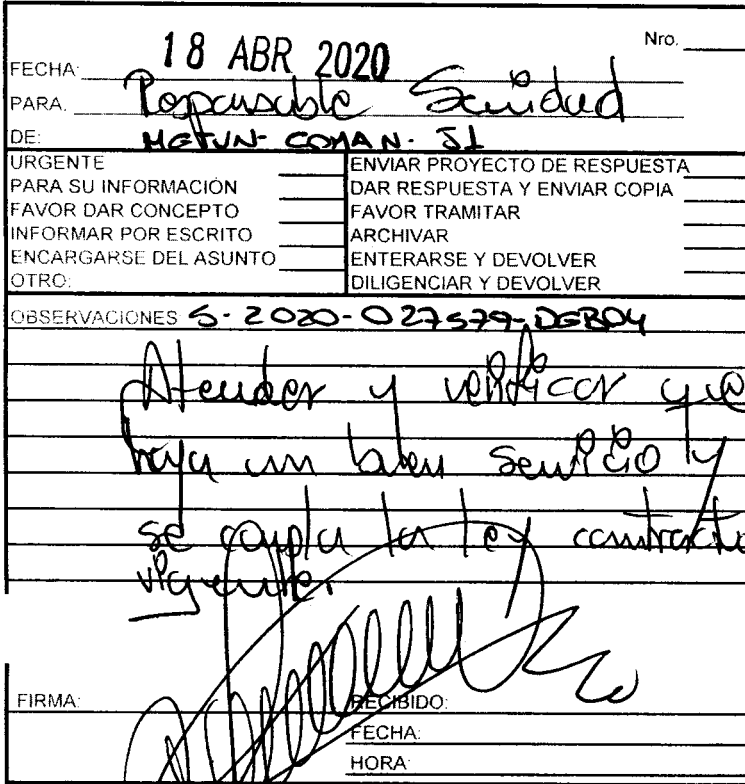 Nro.
FECHA: 18 ABR 2020
PARA. Responsable Sanidad
DE: METUN- COMAN- J1
URGENTE
PARA SU INFORMACIÓN
FAVOR DAR CONCEPTO
INFORMAR POR ESCRITO
ENCARGARSE DEL ASUNTO
OTRO:
ENVIAR PROYECTO DE RESPUESTA
DAR RESPUESTA Y ENVIAR COPIA
FAVOR TRAMITAR
ARCHIVAR
ENTERARSE Y DEVOLVER
DILIGENCIAR Y DEVOLVER
OBSERVACIONES S-2020-027579-DGBDY
Atender y verificar que
haya un buen servicio y
se cumpla la ley contracto
vigente.
FIRMA:
RECIBIDO:
FECHA:
HORA: